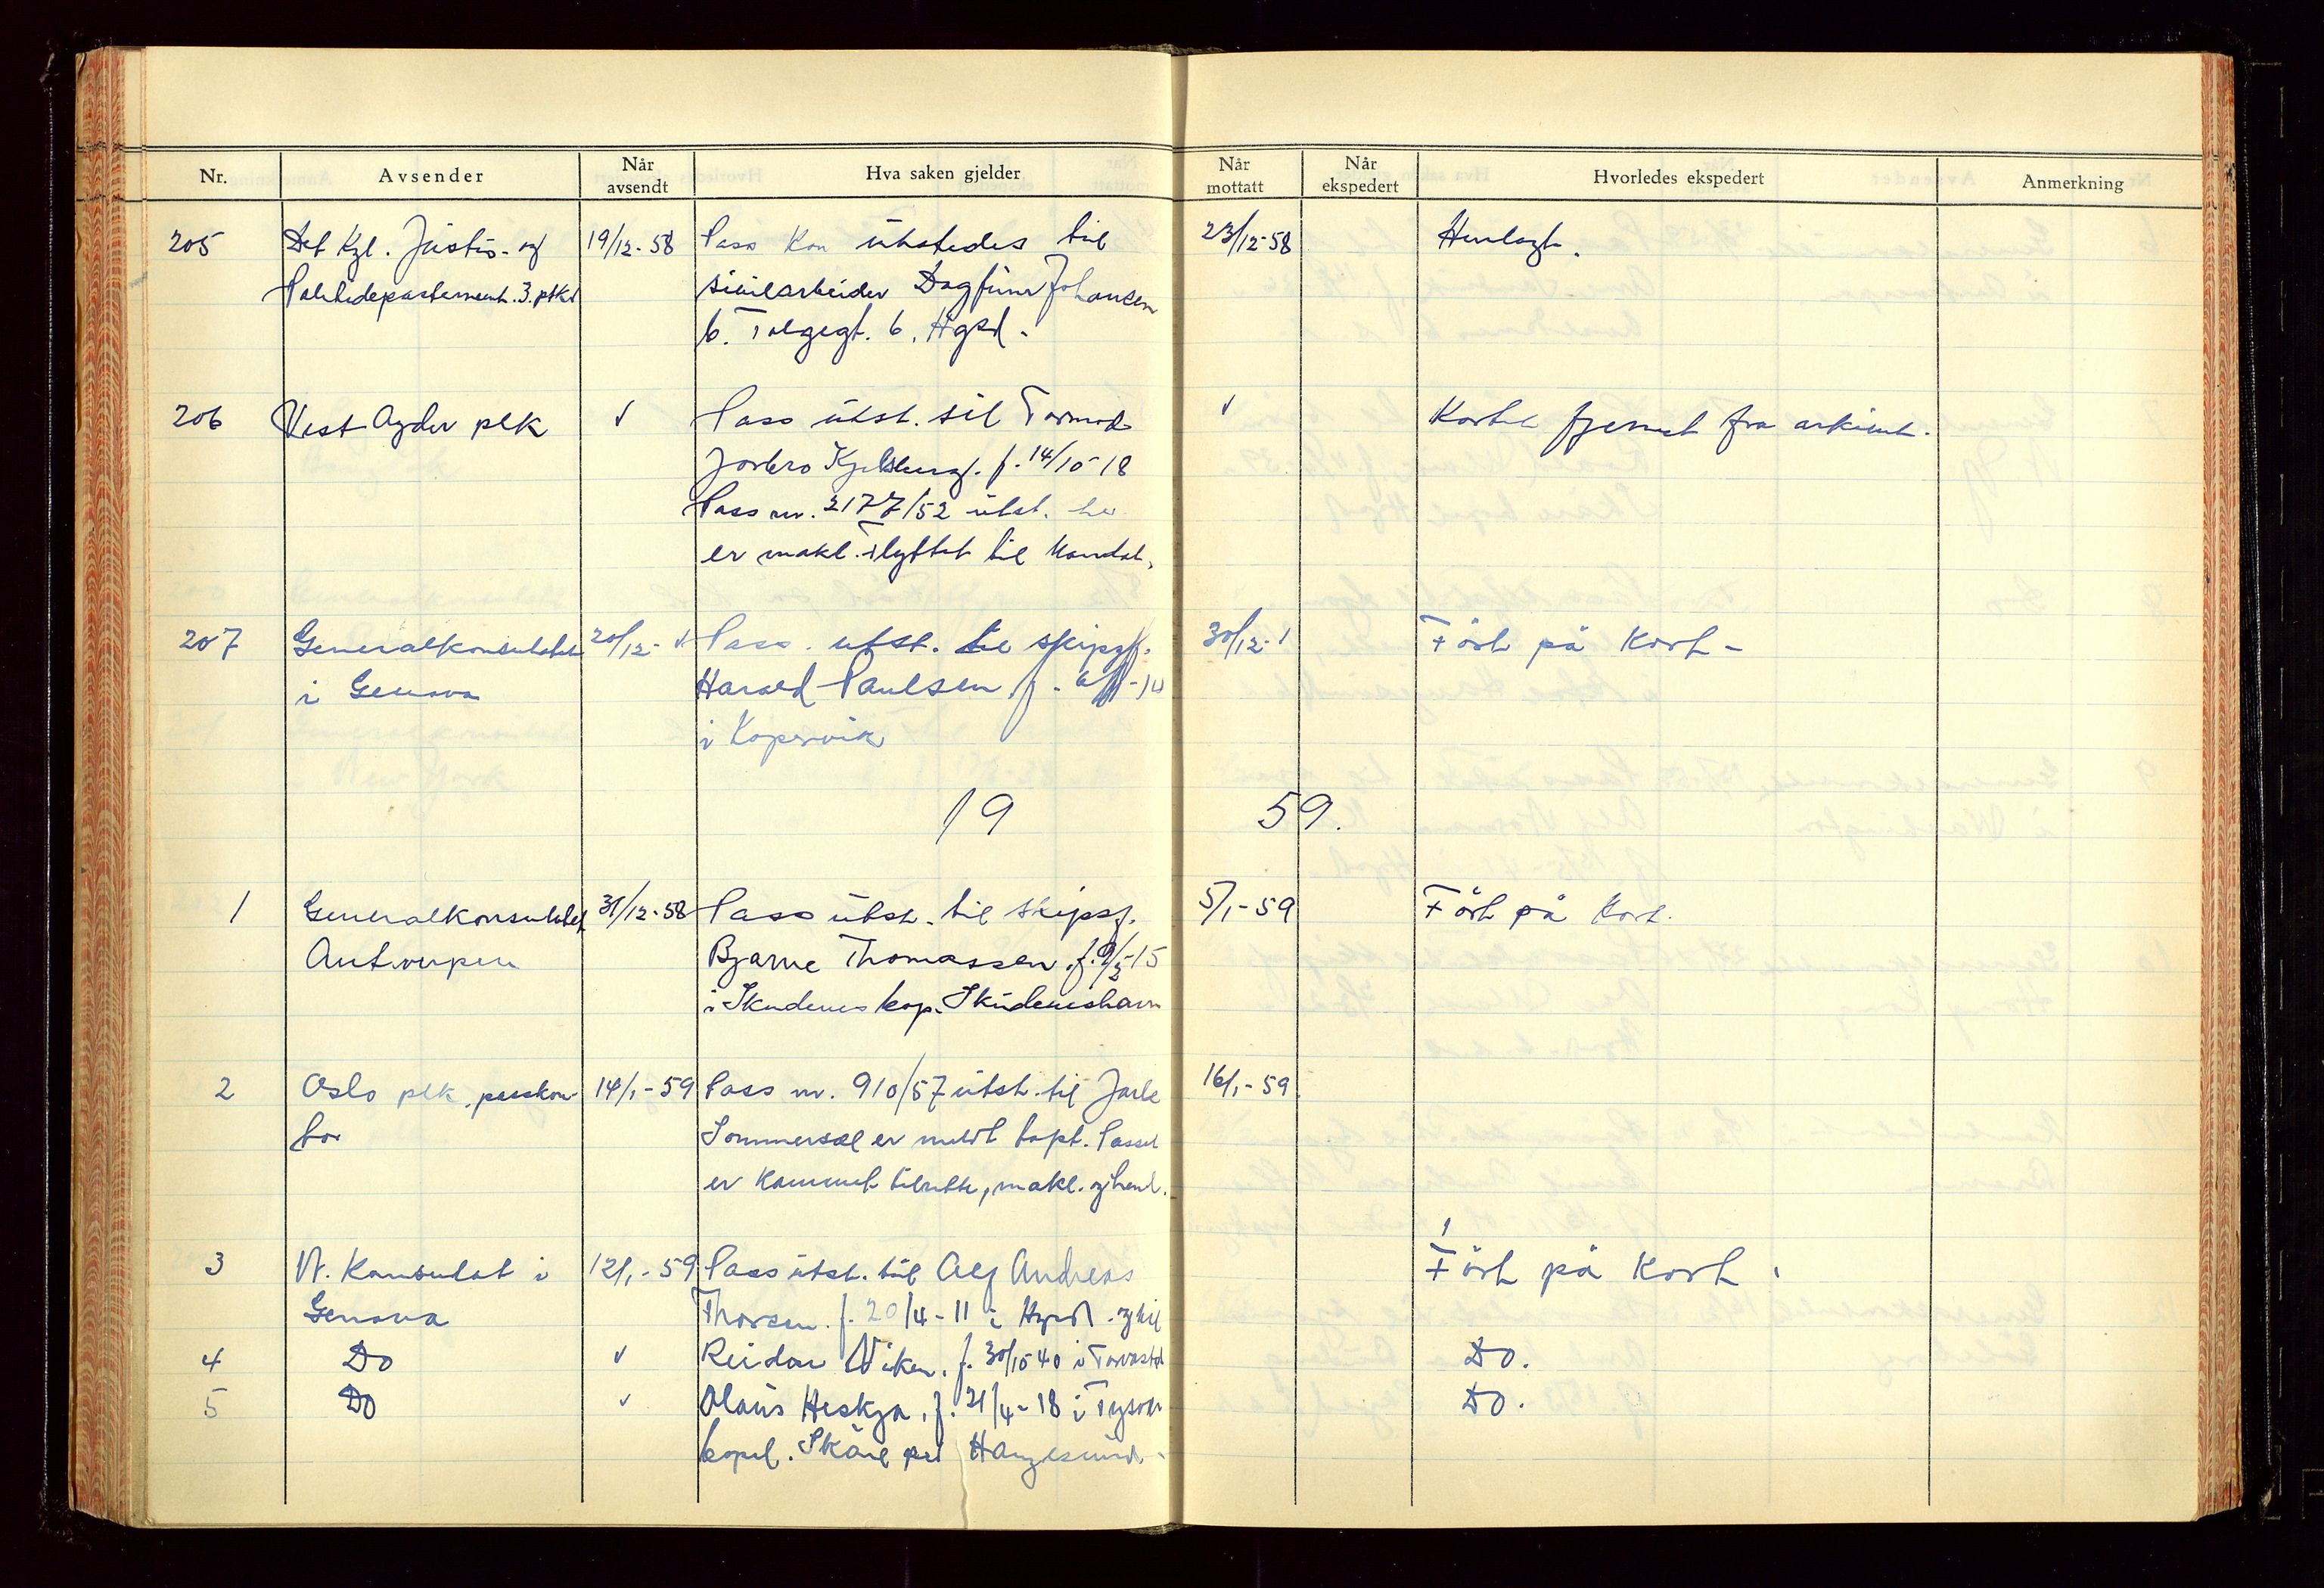 Nr.
Avsender
Når avsendt
Hva saken gjelder
Når mottatt
Når ekspedert
Hvorledes ekspedert
Anmerkning
205 Det Kgl. Justis- og 19/12-58 Pass kan utstedes til 23/12-58 Henlagt.
Politidepartement. 3. plkt sivilarbeider Dagfinn Johansen
b. Tolgegt. 6, Hgsd.
206 Vest Agder plk √ Pass utst. til Tormod √ Kortet fjernet fra arkivet.
Kjelsberg. f. 14/10-18
Pass nr. 2177/52 utst. her
er makl. Flyttet til Mandal.
207 Generalkonsulatet 20/12- √ Pass utst. til skipsf. 30/12- Ført på kort-
i Genova Harald Paulsen f.
i Kopervik
19 59.
1 Generalkonsulatet 31/12-58 Pass utst. til skipsf. 5/1-59 Ført på kort.
Antwerpen Bjarne Thomassen f. 9/5-15
i Skudenes bop. Skudeneshavn
2 Oslo plk. passkon- 14/1-59 Pass nr. 910/57 utst. til Jarle 16/1-59
tor Sommersæl er meldt tapt. Passet
er kommet tilrette, makl. og henl.
3 N. Konsulat i 12/1-59 Pass utst. til Alf Andreas Ført på kort.
Genova Thorsen. f. 20/4-11 i Hgsd. og til
4 Do √ Reidar Viken. f. 30/10-40 i Torvastad Do.
5 Do √ Olaus Heskja, f. 21/4-18 i Tysvær Do.
bopel. Skåre pr Haugesund.